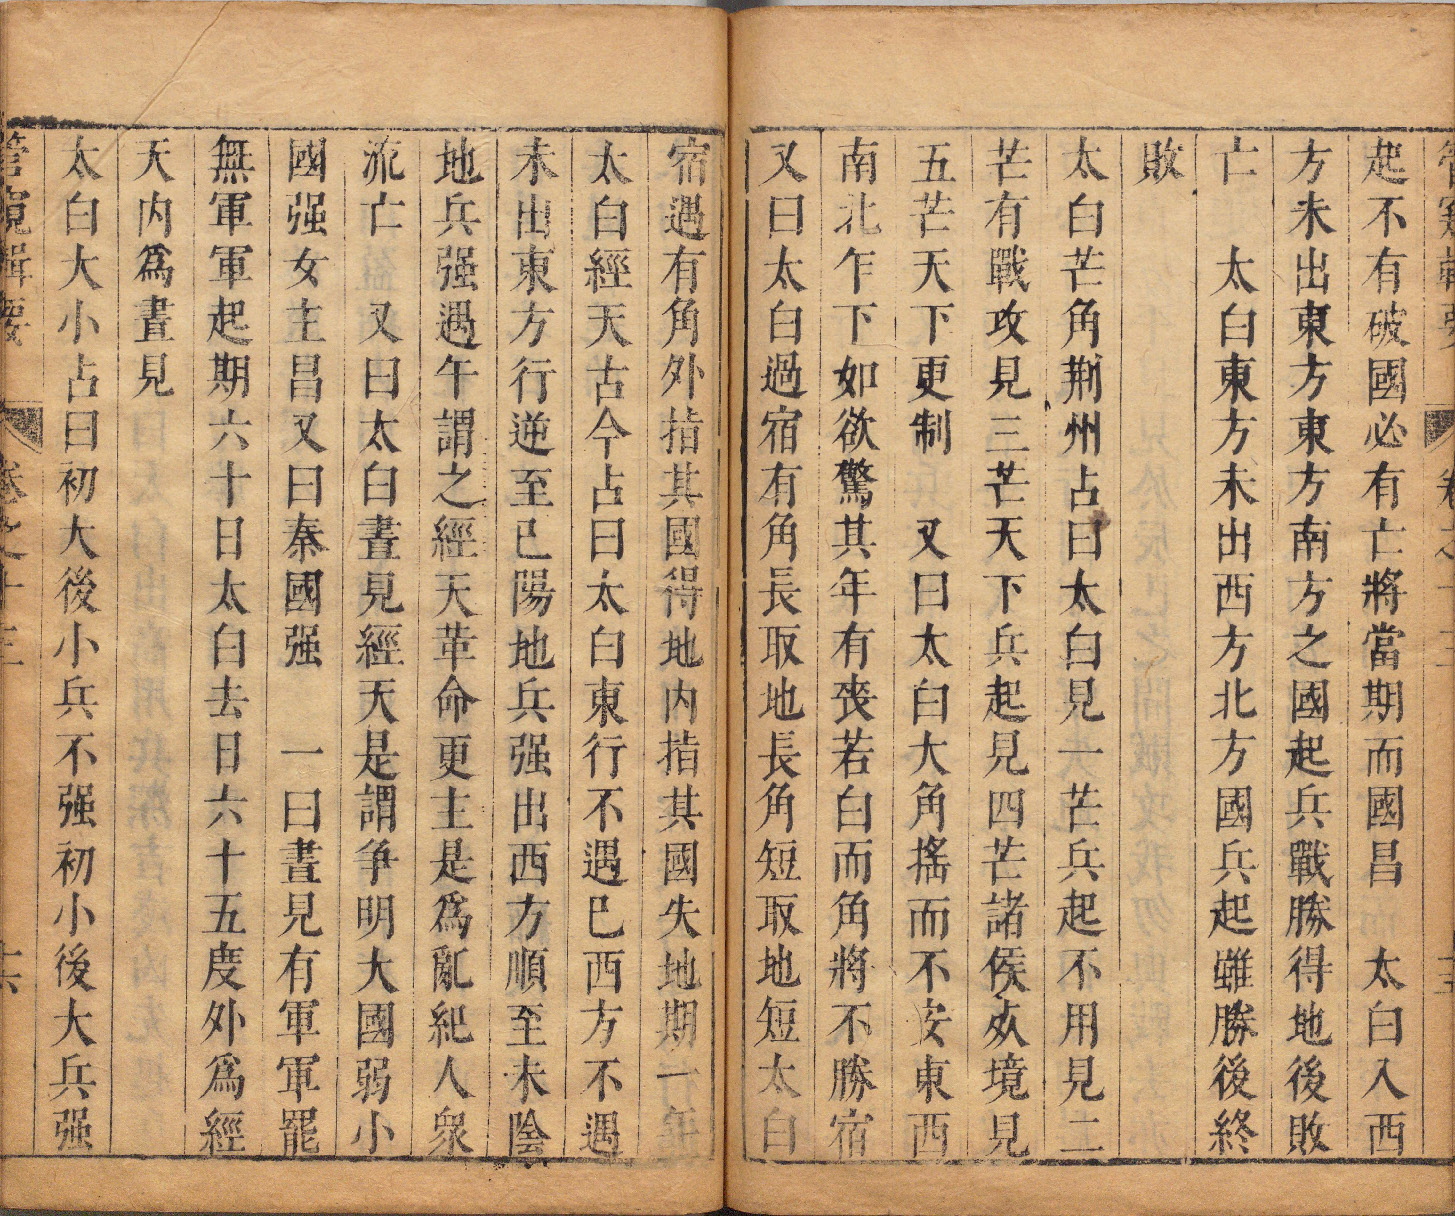 管窺輯要 卷之十三 十五
起不有破國必有亡將當期而國昌 太白入西
方未出東方東方南方之國起兵戰勝得地後敗
亡 太白東方未出西方北方國兵起雖勝後終
敗
太白芒角荆州占曰太白見一芒兵起不用見二
芒有戰攻見三芒天下兵起見四芒諸侯𠪨境見
五芒天下更制 又曰太白大角搖而不安東西
南北乍下如欲驚其年有喪若白而角將不勝宿
又曰太白過宿有角長取地長角短取地短太白
宿遇有角外指其國得地内指其國失地期一年
太白經天古今占曰太白東行不遇巳西方不遇
未出東方行逆至巳陽地兵强出西方順至未陰
地兵强遇午謂之經天革命更主是爲亂紀人衆
流亡 又曰太白晝見經天是謂爭明大國弱小
國强女主昌又曰秦國强 一曰晝見有軍軍罷
無軍軍起期六十日太白去日六十五度外爲經
天内爲晝見
太白大小占曰初大後小兵不强初小後大兵强
管窺輯要 卷之十三 十六